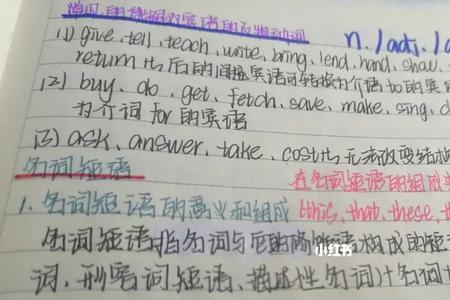 常见的能接双宾语的及物动词
n. / adj. / a
(1) give、tell、teach、write、bring、lend、hand、show、s
return 等后的间接宾语可转换为介词to的宾语
(2) buy、do、get、fetch、save、make、sing、c
为介词 for 的宾语
(3) ask、answer、take、cost等无法改变结构
名词短语
在名词短语的组成中
1. 名词短语的意义和组成 (this, that, these, th
小红书
名词短语指名词与它的修饰语构成的短
词、形容词短语、描述性名词)+名词+